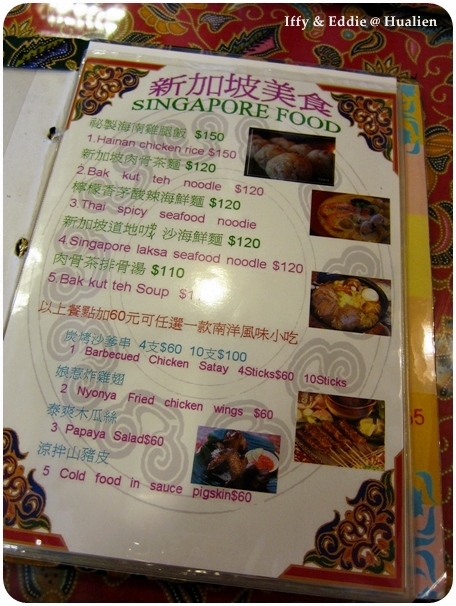 Iffy & Eddie @ Hualien
新加坡美食
SINGAPORE FOOD
祕製海南雞腿飯 $150
1.Hainan chicken rice $150
新加坡肉骨茶麵 $120
2.Bak kut teh noodle $120
檸檬香茅酸辣海鮮麵 $120
3.Thai spicy seafood noodie
新加坡道地叻沙海鮮麵 $120
4.Singapore laksa seafood noodle $120
肉骨茶排骨湯 $110
5.Bak kut teh Soup
以上餐點加60元可任選一款南洋風味小吃
炭烤沙嗲串 4支$60 10支$100
1 Barbecued Chicken Satay 4Sticks$60 10Sticks
娘惹炸雞翅
2 Nyonya Fried chicken wings $60
泰爽木瓜絲
3 Papaya Salad$60
涼拌山豬皮
5 Cold food in sauce pigskin$60